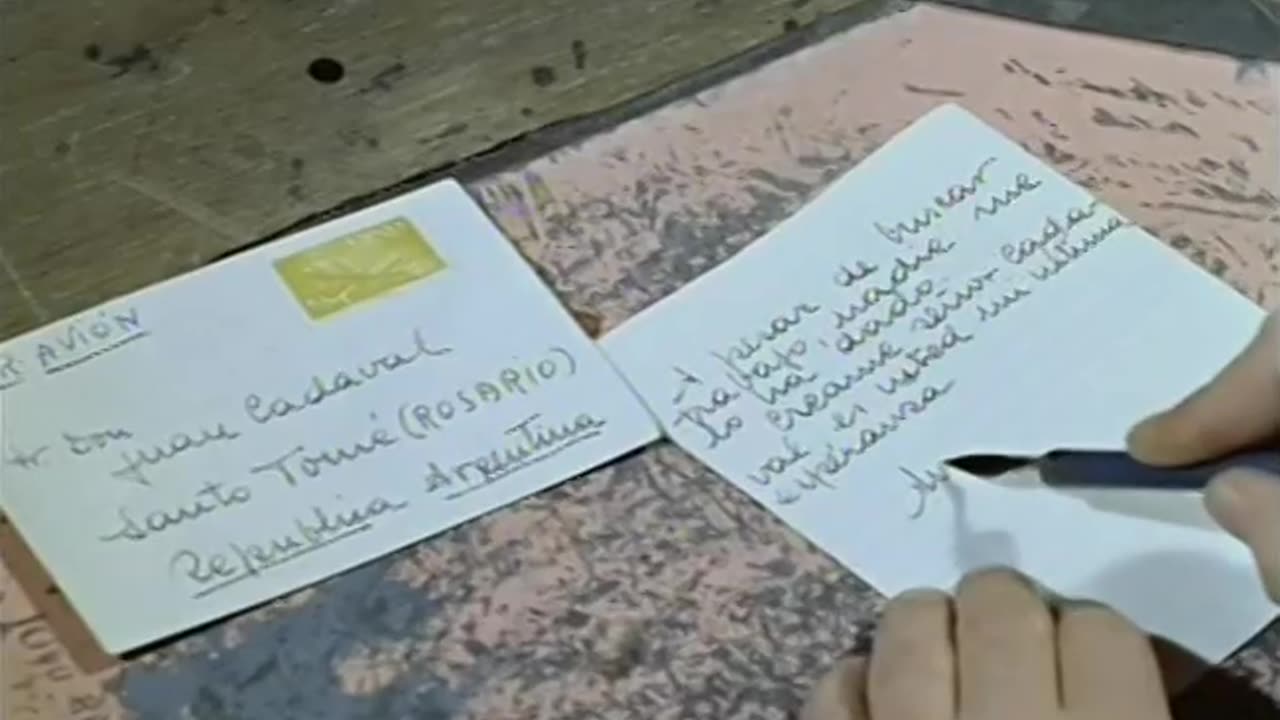 AVIÓN
Sr. Don
Juan Cadaval
Santo Tomé (ROSARIO)
Republica Argentina
A pesar de buscar
trabajo, nadie me
lo ha dado.
Creame señor Cada-
val es usted mi ultima
esperanza